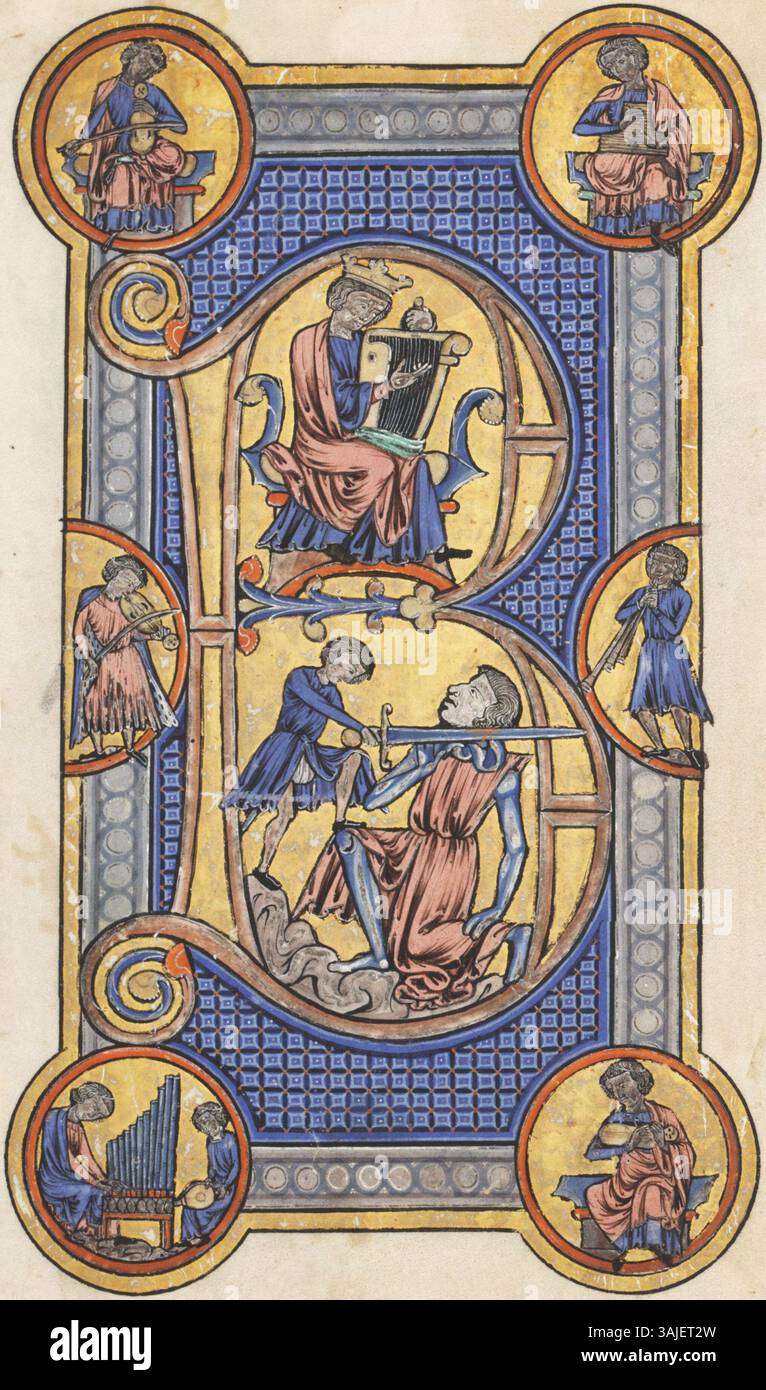 B
alamy
Image ID: 3AJET2W
www.alamy.com